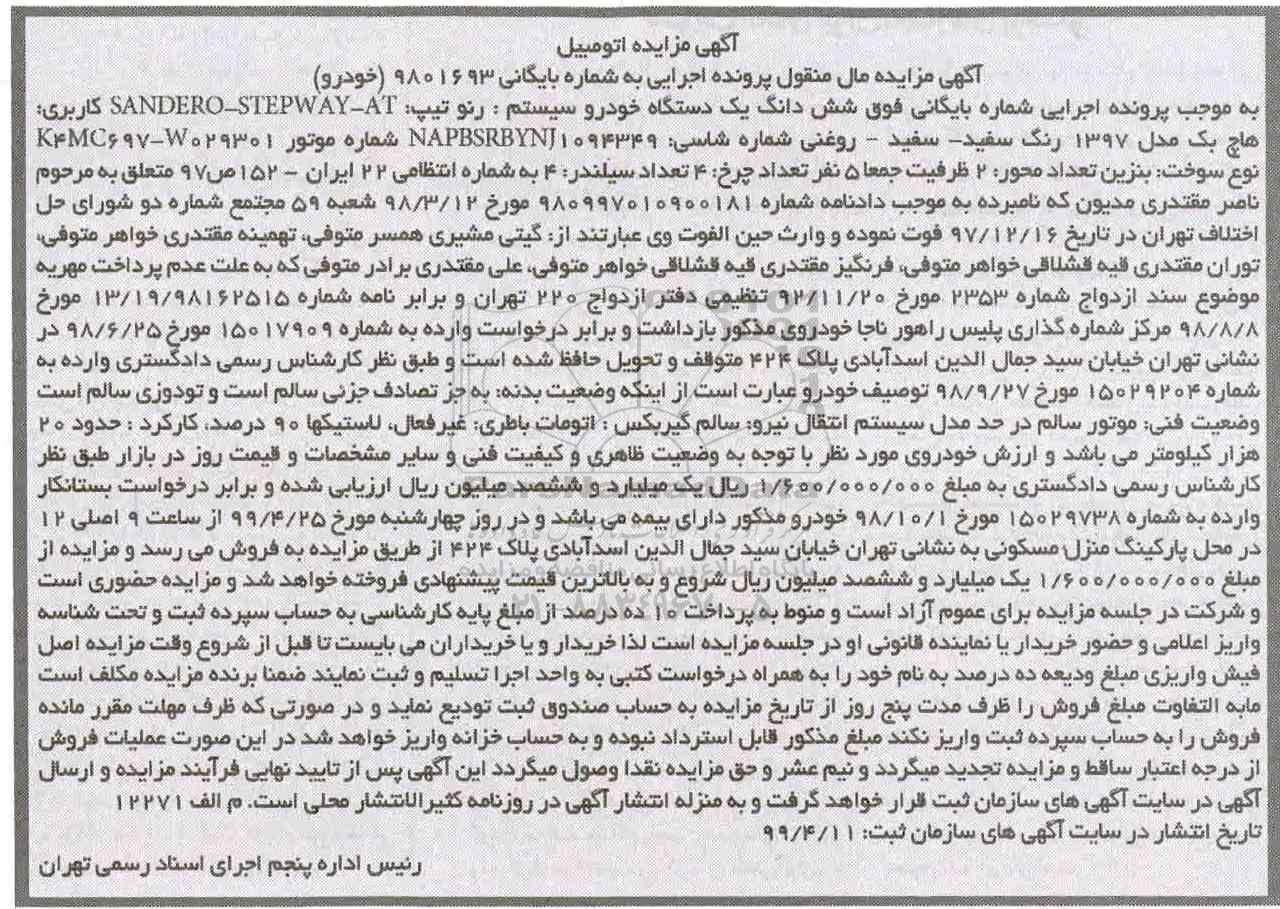 آگهی مزایده اتومبیل
آگهی مزایده مال منقول پرونده اجرایی به شماره بایگانی ۹۸۰۱۶۹۳ (خودرو)
به موجب پرونده اجرایی شماره بایگانی فوق شش دانگ یک دستگاه خودرو سیستم : رنو تیپ: SANDERO-STEPWAY-AT کاربری:
هاچ بک مدل ۱۳۹۷ رنگ سفید- سفید - روغنی شماره شاسی: NAPBSRBYNJ۱۰۹۴۳۴۹ شماره موتور K۴MC۶۹۷-W۰۲۹۳۰۱
نوع سوخت: بنزین تعداد محور: ۲ ظرفیت جمعا ۵ نفر تعداد چرخ: ۴ تعداد سیلندر: ۴ به شماره انتظامی ۲۲ ایران - ۱۵۲ص۹۷ متعلق به مرحوم
ناصر مقتدری مدیون که نامبرده به موجب دادنامه شماره ۹۸۰۹۹۷۰۱۰۹۰۰۱۸۱ مورخ ۹۸/۳/۱۲ شعبه ۵۹ مجتمع شماره دو شورای حل
اختلاف تهران در تاریخ ۹۷/۱۲/۱۶ فوت نموده و وارث حین الفوت وی عبارتند از: گیتی مشیری همسر متوفی، تهمینه مقتدری خواهر متوفی،
توران مقتدری قیه قشلاقی خواهر متوفی، فرنگیز مقتدری قیه قشلاقی خواهر متوفی، علی مقتدری برادر متوفی که به علت عدم پرداخت مهریه
موضوع سند ازدواج شماره ۲۳۵۳ مورخ ۹۲/۱۱/۲۰ تنظیمی دفتر ازدواج ۲۲۰ تهران و برابر نامه شماره ۱۳/۱۹/۹۸۱۶۲۵۱۵ مورخ
۹۸/۸/۸ مرکز شماره گذاری پلیس راهور ناجا خودروی مذکور بازداشت و برابر درخواست وارده به شماره ۱۵۰۱۷۹۰۹ مورخ ۹۸/۶/۲۵ در
نشانی تهران خیابان سید جمال الدین اسدآبادی پلاک ۴۲۴ متوقف و تحویل حافظ شده است و طبق نظر کارشناس رسمی دادگستری وارده به
شماره ۱۵۰۲۹۲۰۴ مورخ ۹۸/۹/۲۷ توصیف خودرو عبارت است از اینکه وضعیت بدنه: به جز تصادف جزئی سالم است و تودوزی سالم است
وضعیت فنی: موتور سالم در حد مدل سیستم انتقال نیرو: سالم گیربکس : اتومات باطری: غیرفعال، لاستیکها ۹۰ درصد، کارکرد : حدود ۲۰
هزار کیلومتر می باشد و ارزش خودروی مورد نظر با توجه به وضعیت ظاهری و کیفیت فنی و سایر مشخصات و قیمت روز در بازار طبق نظر
کارشناس رسمی دادگستری به مبلغ ۱/۶۰۰/۰۰۰/۰۰۰ ریال یک میلیارد و ششصد میلیون ریال ارزیابی شده و برابر درخواست بستانکار
وارده به شماره ۱۵۰۲۹۷۳۸ مورخ ۹۸/۱۰/۱ خودرو مذکور دارای بیمه می باشد و در روز چهارشنبه مورخ ۹۹/۴/۲۵ از ساعت ۹ اصلی ۱۲
در محل پارکینگ منزل مسکونی به نشانی تهران خیابان سید جمال الدین اسدآبادی پلاک ۴۲۴ از طریق مزایده به فروش می رسد و مزایده از
مبلغ ۱/۶۰۰/۰۰۰/۰۰۰ یک میلیارد و ششصد میلیون ریال شروع و به بالاترین قیمت پیشنهادی فروخته خواهد شد و مزایده حضوری است
و شرکت در جلسه مزایده برای عموم آزاد است و منوط به پرداخت ۱۰ ده درصد از مبلغ پایه کارشناسی به حساب سپرده ثبت و تحت شناسه
واریز اعلامی و حضور خریدار یا نماینده قانونی او در جلسه مزایده است لذا خریدار و یا خریداران می بایست تا قبل از شروع وقت مزایده اصل
فیش واریزی مبلغ ودیعه ده درصد به نام خود را به همراه درخواست کتبی به واحد اجرا تسلیم و ثبت نمایند ضمنا برنده مزایده مکلف است
مابه التفاوت مبلغ فروش را ظرف مدت پنج روز از تاریخ مزایده به حساب صندوق ثبت تودیع نماید و در صورتی که ظرف مهلت مقرر مانده
فروش را به حساب سپرده ثبت واریز نکند مبلغ مذکور قابل استرداد نبوده و به حساب خزانه واریز خواهد شد در این صورت عملیات فروش
از درجه اعتبار ساقط و مزایده تجدید میگردد و نیم عشر و حق مزایده نقدا وصول میگردد این آگهی پس از تایید نهایی فرآیند مزایده و ارسال
آگهی در سایت آگهی های سازمان ثبت قرار خواهد گرفت و به منزله انتشار آگهی در روزنامه کثیرالانتشار محلی است. م الف ۱۲۲۷۱
تاریخ انتشار در سایت آگهی های سازمان ثبت: ۹۹/۴/۱۱
رئیس اداره پنجم اجرای اسناد رسمی تهران